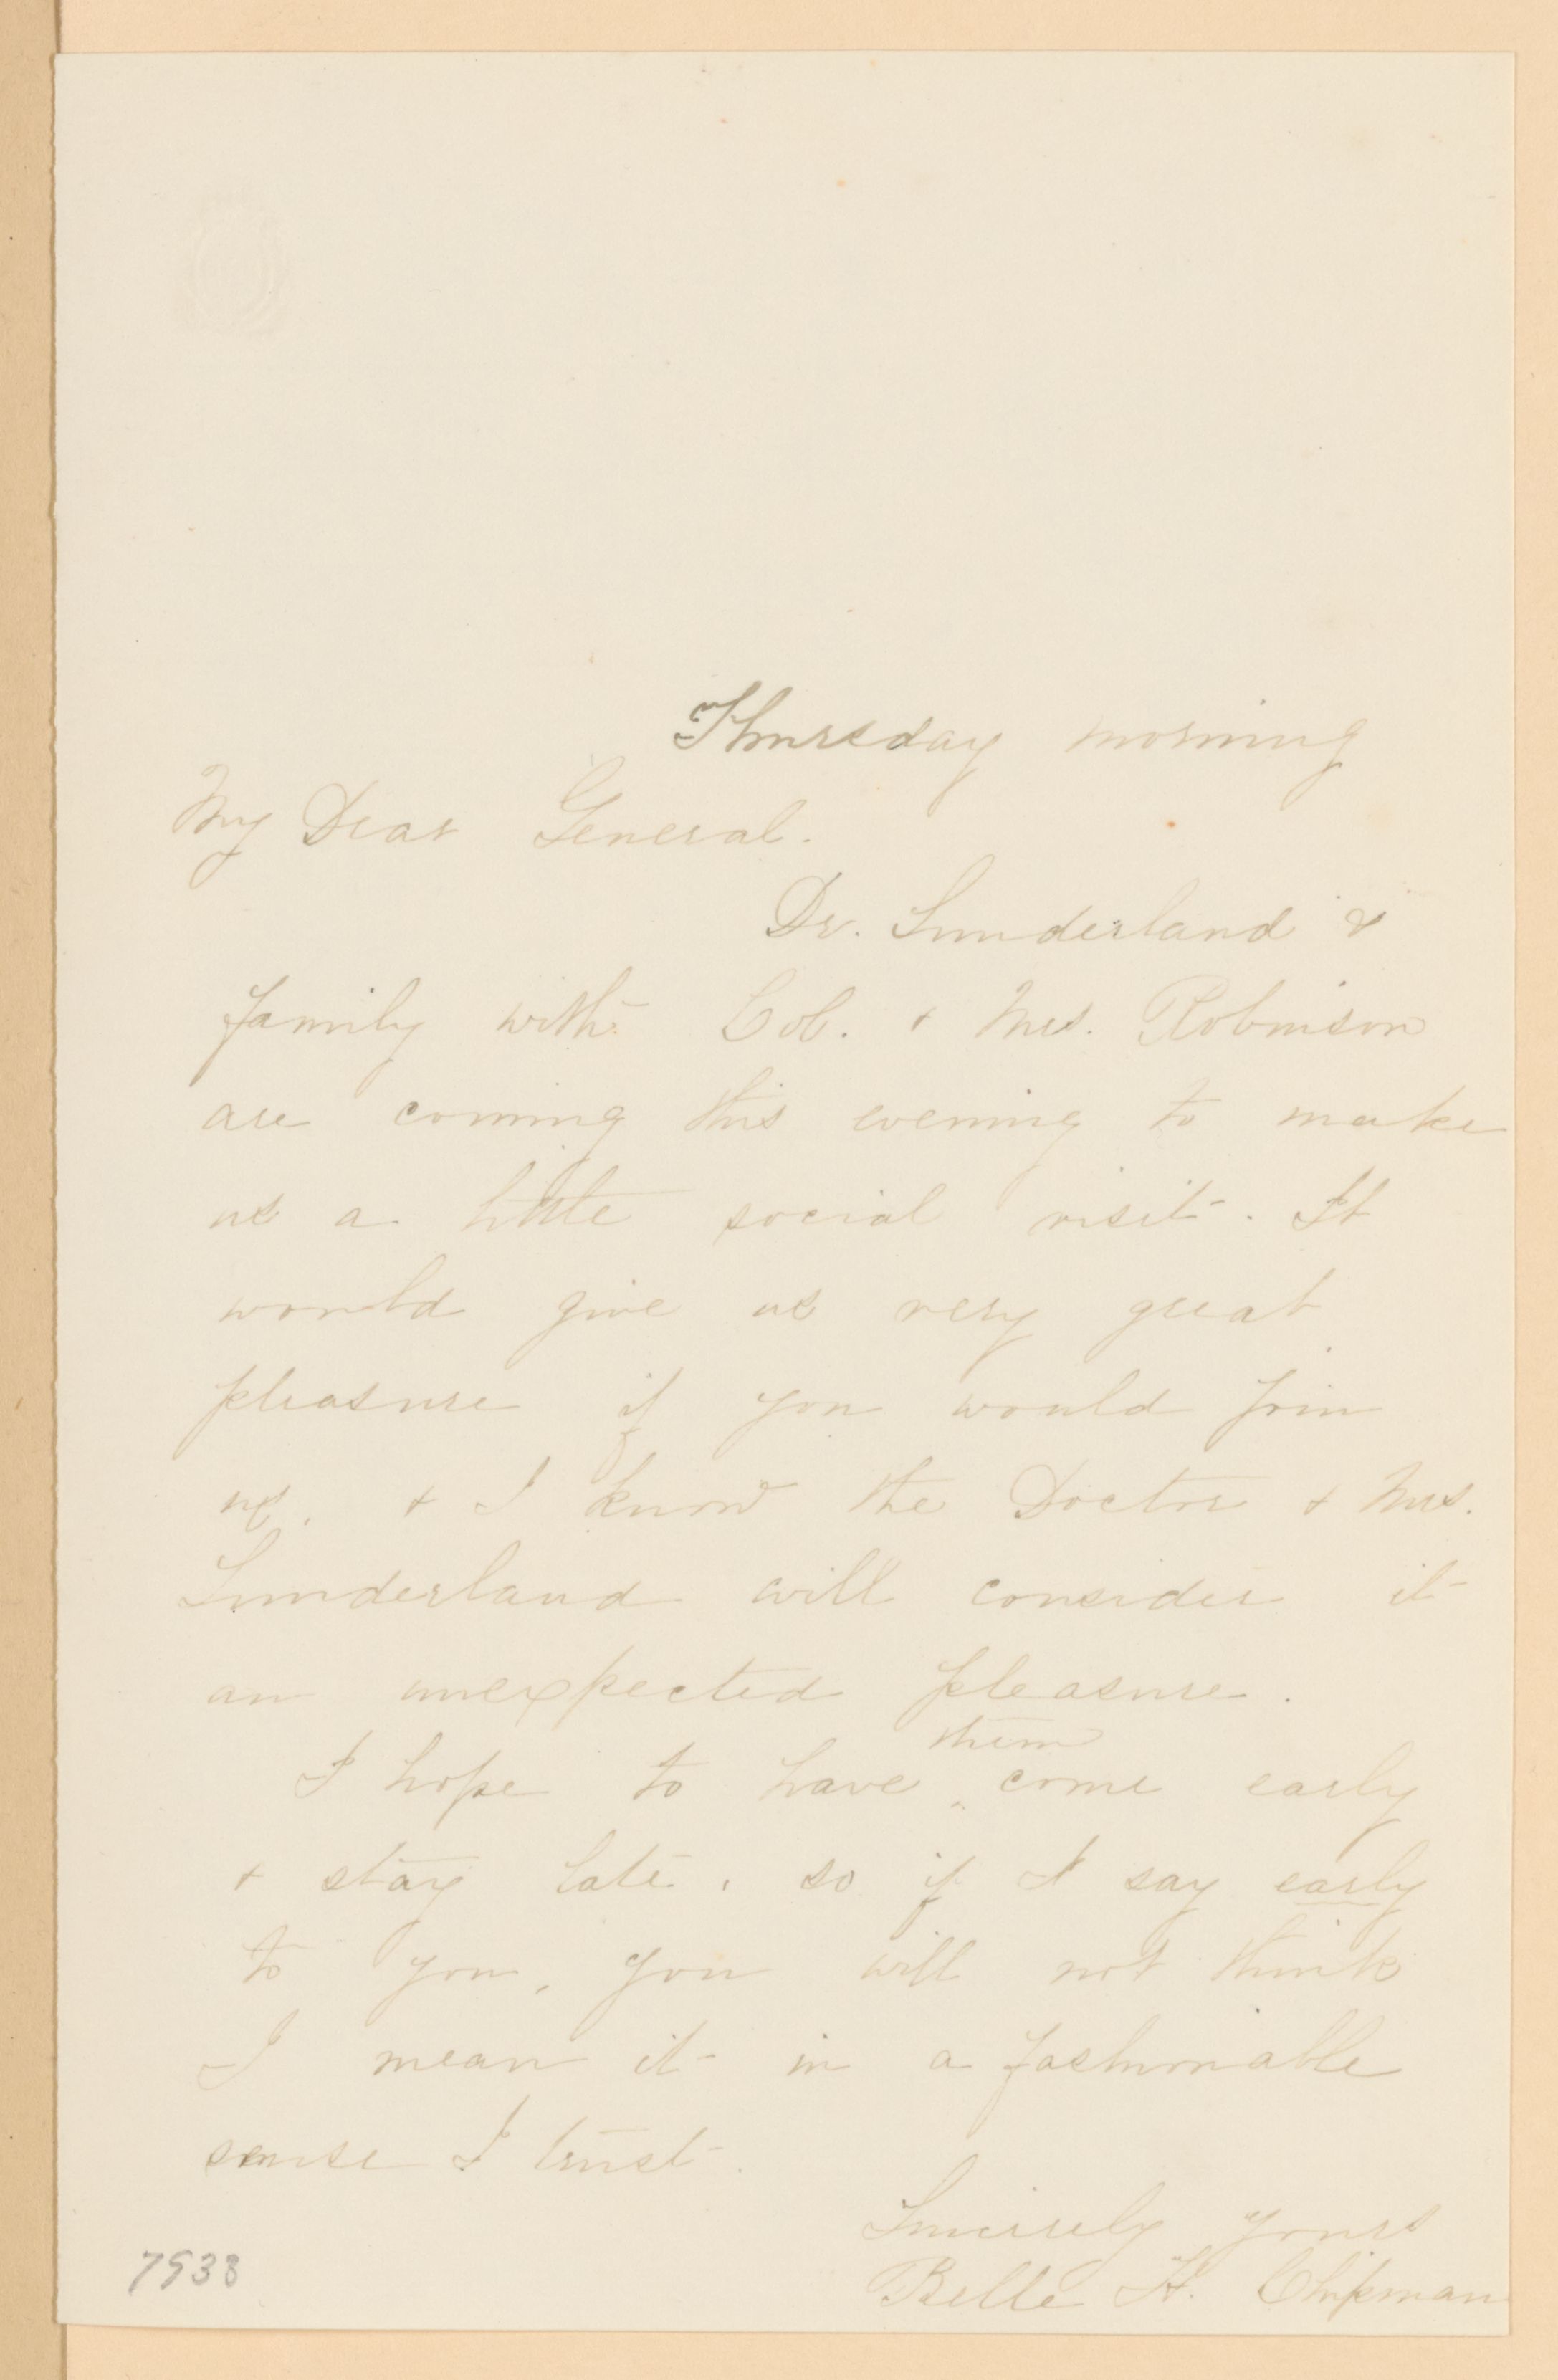 Thursday morning
My Dear General.
Dr. Sunderland &
family with Col. & Mrs. Robinson
are coming this evening to make
us a little social visit. It
would give us very great
pleasure if you would join
us. & I know the Doctor & Mrs.
Sunderland will consider it
an unexpected pleasure.
them
I hope to have come early
& stay late, so if I say early
to you, you will not think
I mean it in a fashionable
sense I trust.
Sincerely yours
Belle H. Chipman
7538